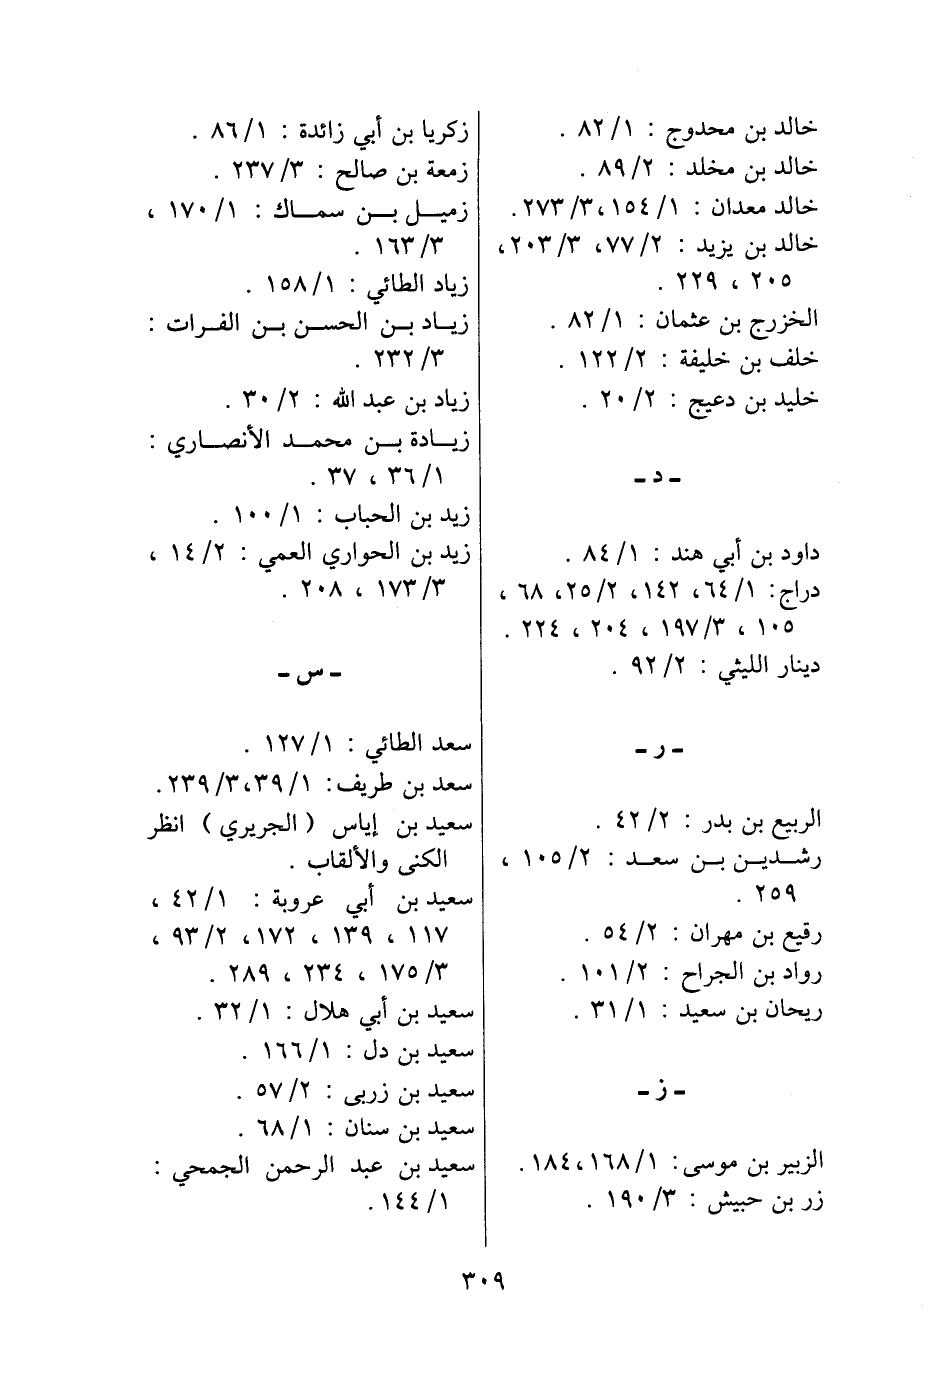 خالد بن محدوج : ١/ ٨٢ .
خالد بن مخلد : ٢/ ٨٩ .
خالد معدان : ١/ ١٥٤، ٣/ ٢٧٣.
خالد بن يزيد : ٢/ ٧٧، ٣/ ٢٠٣،
٢٠٥ ، ٢٢٩ .
الخزرج بن عثمان : ١/ ٨٢ .
خلف بن خليفة : ٢/ ١٢٢ .
خليد بن دعيج : ٢/ ٢٠ .
- د -
داود بن أبي هند : ١/ ٨٤ .
دراج: ١/ ٦٤، ١٤٢، ٢/ ٢٥، ٦٨ ،
١٠٥ ، ٣/ ١٩٧ ، ٢٠٤ ، ٢٢٤ .
دينار الليثي : ٢/ ٩٢ .
- ر -
الربيع بن بدر : ٢/ ٤٢ .
رشدين بن سعد : ٢/ ١٠٥ ،
٢٥٩ .
رقيع بن مهران : ٢/ ٥٤ .
رواد بن الجراح : ٢/ ١٠١ .
ريحان بن سعيد : ١/ ٣١ .
- ز -
الزبير بن موسى: ١/ ١٦٨، ١٨٤.
زر بن حبيش : ٣/ ١٩٠ .
زكريا بن أبي زائدة : ١/ ٨٦ .
زمعة بن صالح : ٣/ ٢٣٧ .
زميل بن سماك : ١/ ١٧٠ ،
٣/ ١٦٣ .
زياد الطائي : ١/ ١٥٨ .
زياد بن الحسن بن الفرات :
٣/ ٢٣٢ .
زياد بن عبد الله : ٢/ ٣٠ .
زيادة بن محمد الأنصاري :
١/ ٣٦ ، ٣٧ .
زيد بن الحباب : ١/ ١٠٠ .
زيد بن الحواري العمي : ٢/ ١٤ ،
٣/ ١٧٣ ، ٢٠٨ .
- س -
سعد الطائي : ١/ ١٢٧ .
سعد بن طريف: ١/ ٣٩، ٣/ ٢٣٩.
سعيد بن إياس ( الجريري ) انظر
الكنى والألقاب .
سعيد بن أبي عروبة : ١/ ٤٢ ،
١١٧ ، ١٣٩ ، ١٧٢، ٢/ ٩٣ ،
٣/ ١٧٥ ، ٢٣٤ ، ٢٨٩ .
سعيد بن أبي هلال : ١/ ٣٢ .
سعيد بن دل : ١/ ١٦٦ .
سعيد بن زربى : ٢/ ٥٧ .
سعيد بن سنان : ١/ ٦٨ .
سعيد بن عبد الرحمن الجمحي :
١/ ١٤٤.
٣٠٩